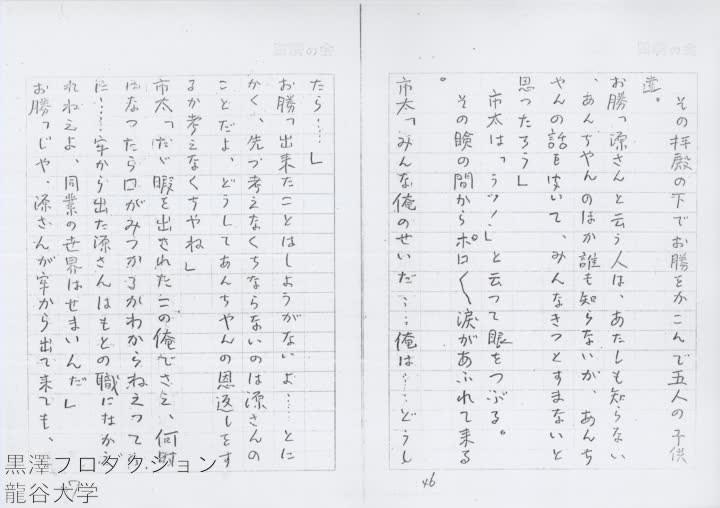 その拝殿の下でお勝をかこんで五人の子供
達。
お勝「源さんと云う人は、あたしも知らない
、あんちやんのほか誰も知らないが、あんち
やんの話を聞いて、みんなきつとすまないと
思つたろう」
市太は「うッ！」と云つて眼をつぶる。
その瞼の間からポロ〱涙があふれて来る
。
市太「みんな俺のせいだ……俺は……どうし
46
たら……」
お勝「出来たことはしようがないよ……とに
かく、先づ考えなくちならないのは源さんの
ことだよ、どうしてあんちやんの恩返しをす
るか考えなくちやね」
市太「だが暇を出されたこの俺でさえ、何時
になつたら口がみつかるかわからねえつての
に……牢から出た源さんはもとの職になかえ
れねえよ、同業の世界はせまいんだ」
お勝「じや、源さんが牢から出て来ても、
黒澤プロダクション
龍谷大学